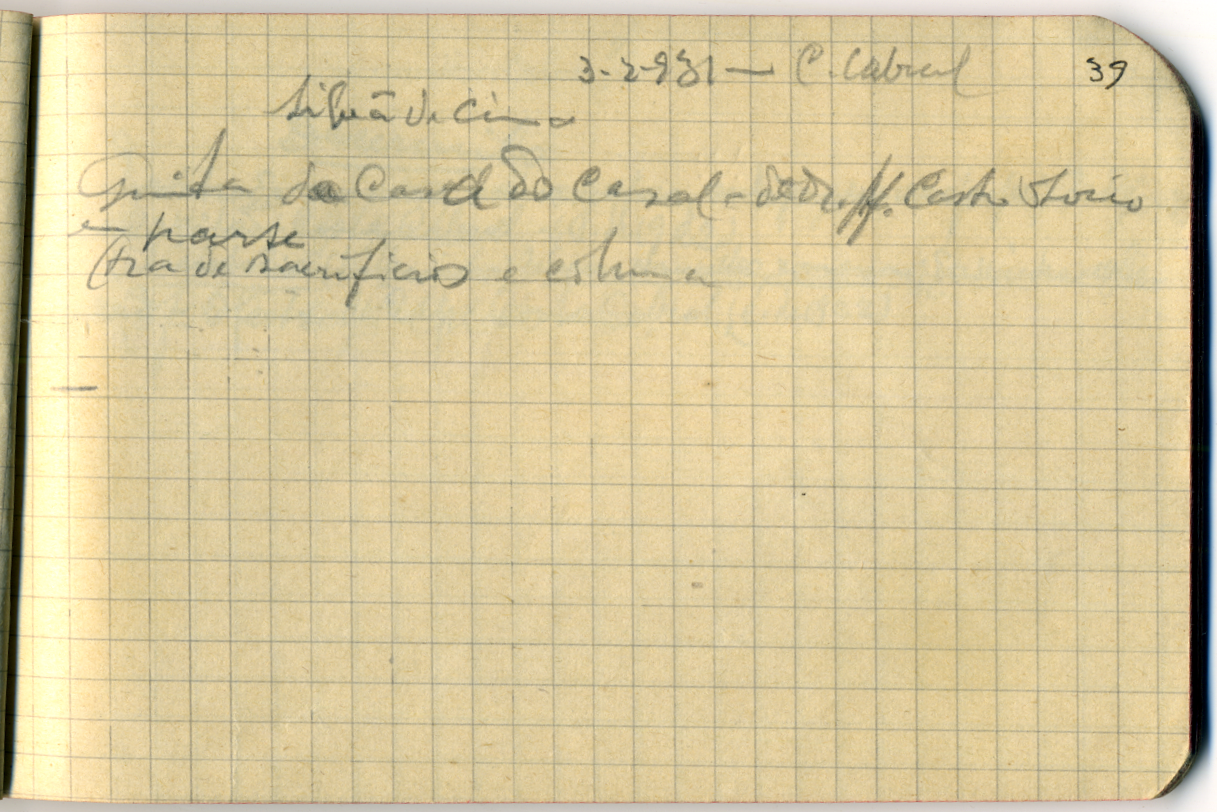 3-2-931 — C. Cabral 39
de Cima
Quinta da Casa do Casal - do Dr. Castro
em parte
Ara de sacrificios e coluna